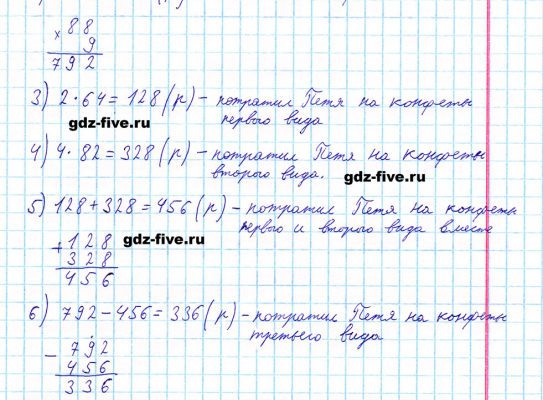 × 88
9
792
3) 2·64=128(р) – потратил Петя на конфеты
первого вида
gdz-five.ru
4) 4·82=328(р) – потратил Петя на конфеты
второго вида.
gdz-five.ru
5) 128+328=456(р) – потратил Петя на конфеты
первого и второго вида вместе
+128
328
456
gdz-five.ru
6) 792-456=336(р) – потратил Петя на конфеты
третьего вида
- 792
456
336